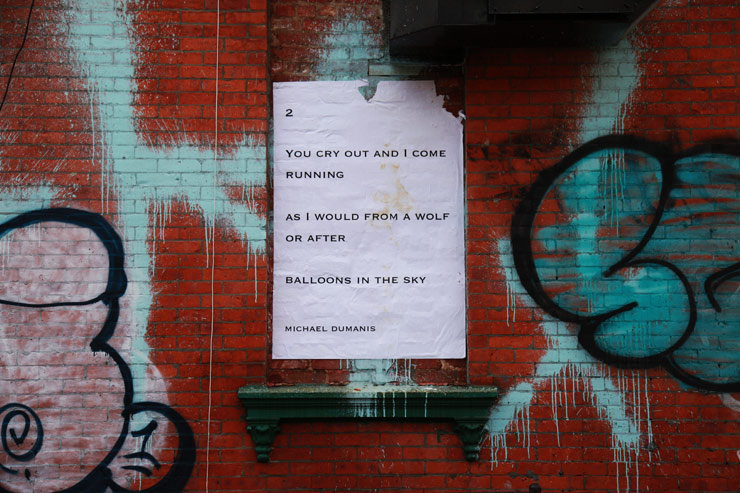 2
YOU CRY OUT AND I COME
RUNNING
AS I WOULD FROM A WOLF
OR AFTER
BALLOONS IN THE SKY
MICHAEL DUMANIS